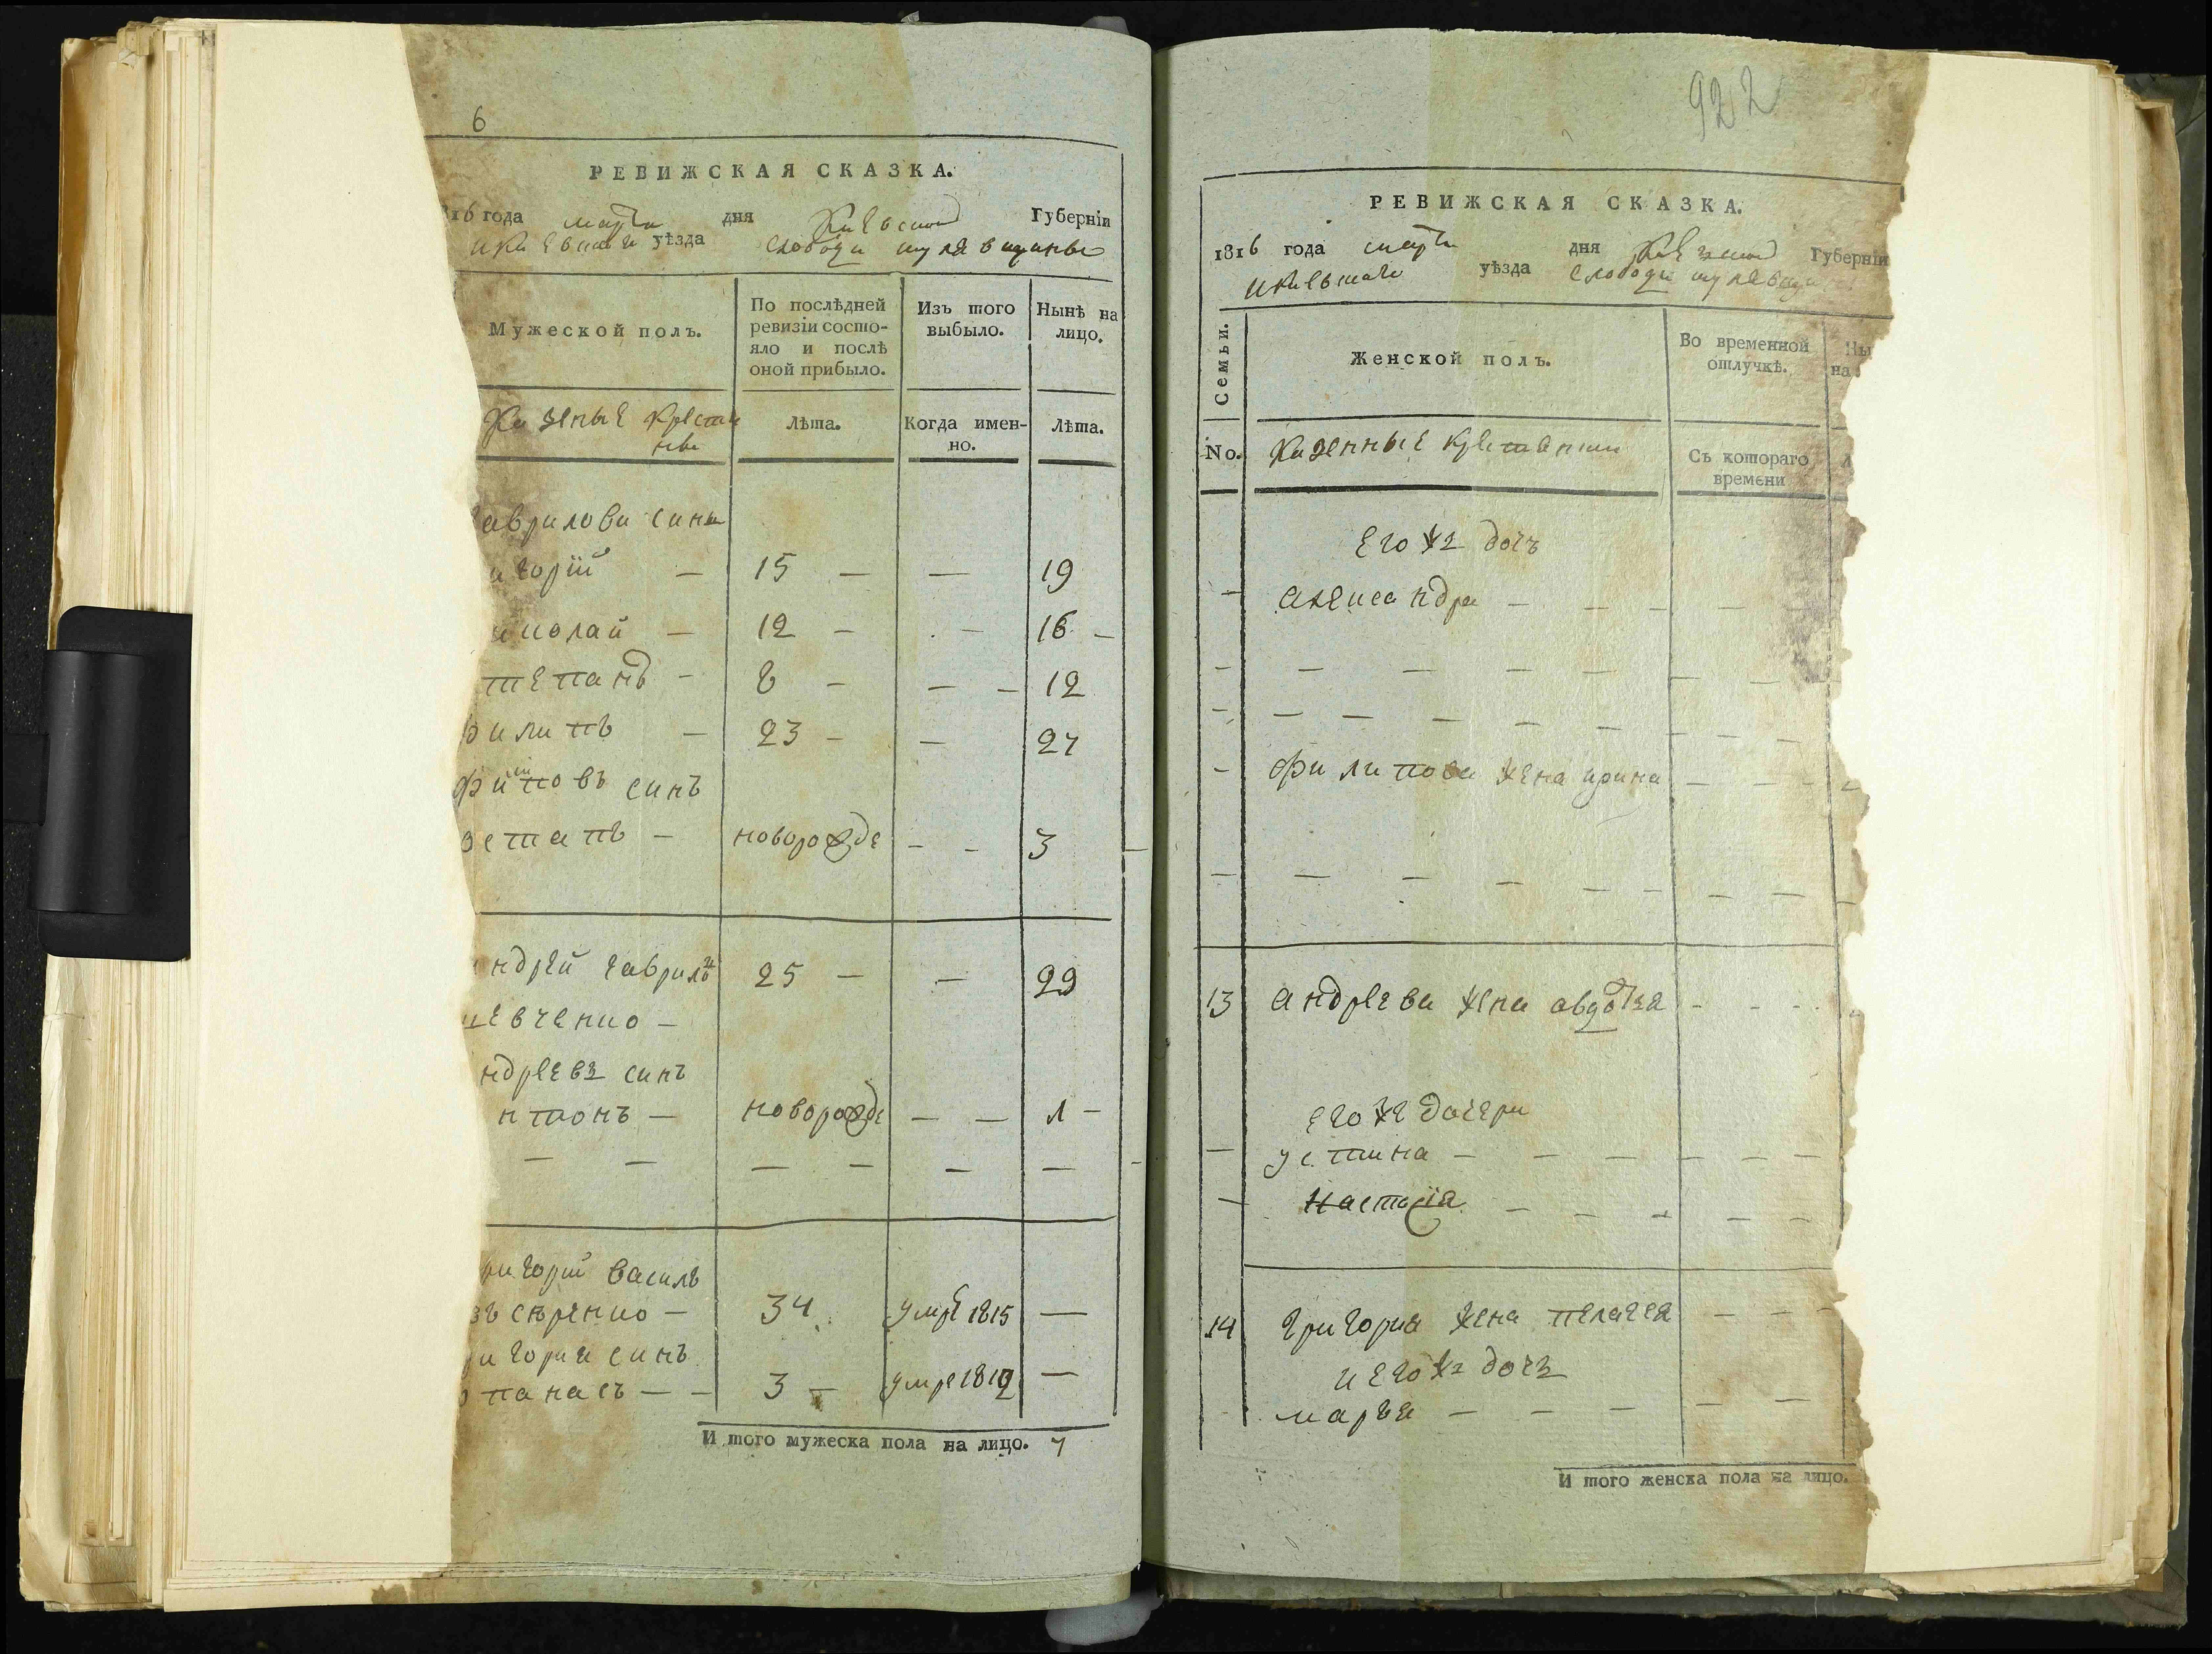 6
РЕВИЖСКАЯ СКАЗКА.
816 года марта дня Киевской Губерніи
уѣзда слободи шулявщины
Мужеской полъ.
По послѣдней ревизіи состо-
яло и послѣ
оной прибыло.
Изъ того
выбыло.
Нынѣ на
лицо.
Казеные крестя
не
Лѣта.
Когда имен-
но.
Лѣта.
авриловы сини
игорій — 15 — — 19
иколай — 12 — — 16 —
тепанъ — 8 — — — 12
филипъ — 23 — — 27
филиповъ синъ
остапъ — новорожде — — 3
ндрей гаврилъ 25 — — 29
шевченко —
ндреевъ синъ
нтонъ — новорожде — — 1 —
— — — — — —
ригорій василь
34 умре 1815 —
ригория синъ
опанасъ — — 3 — умре 1812 —
И того мужеска пола на лицо. 7
922
РЕВИЖСКАЯ СКАЗКА.
1816 года марта дня Киевской Губерніи
уѣзда слободи шулявщи
Семьи.
Женской полъ.
Во временной
отлучкѣ.
Ны
на
No.
Казенные крестянки
Съ котораго
времени
Его же дочъ
— александра — — — — —
— — — — — — — —
— — — — — — — — —
— филипова жена ирина — — —
— — — — — — — —
13 андреева жена авдотя — — —
его же дочери
— устина — — — — — —
— настасія — — — — — —
14 григория жена пелагея — — —
и его же дочъ
маря — — — — —
И того женска пола на лицо.